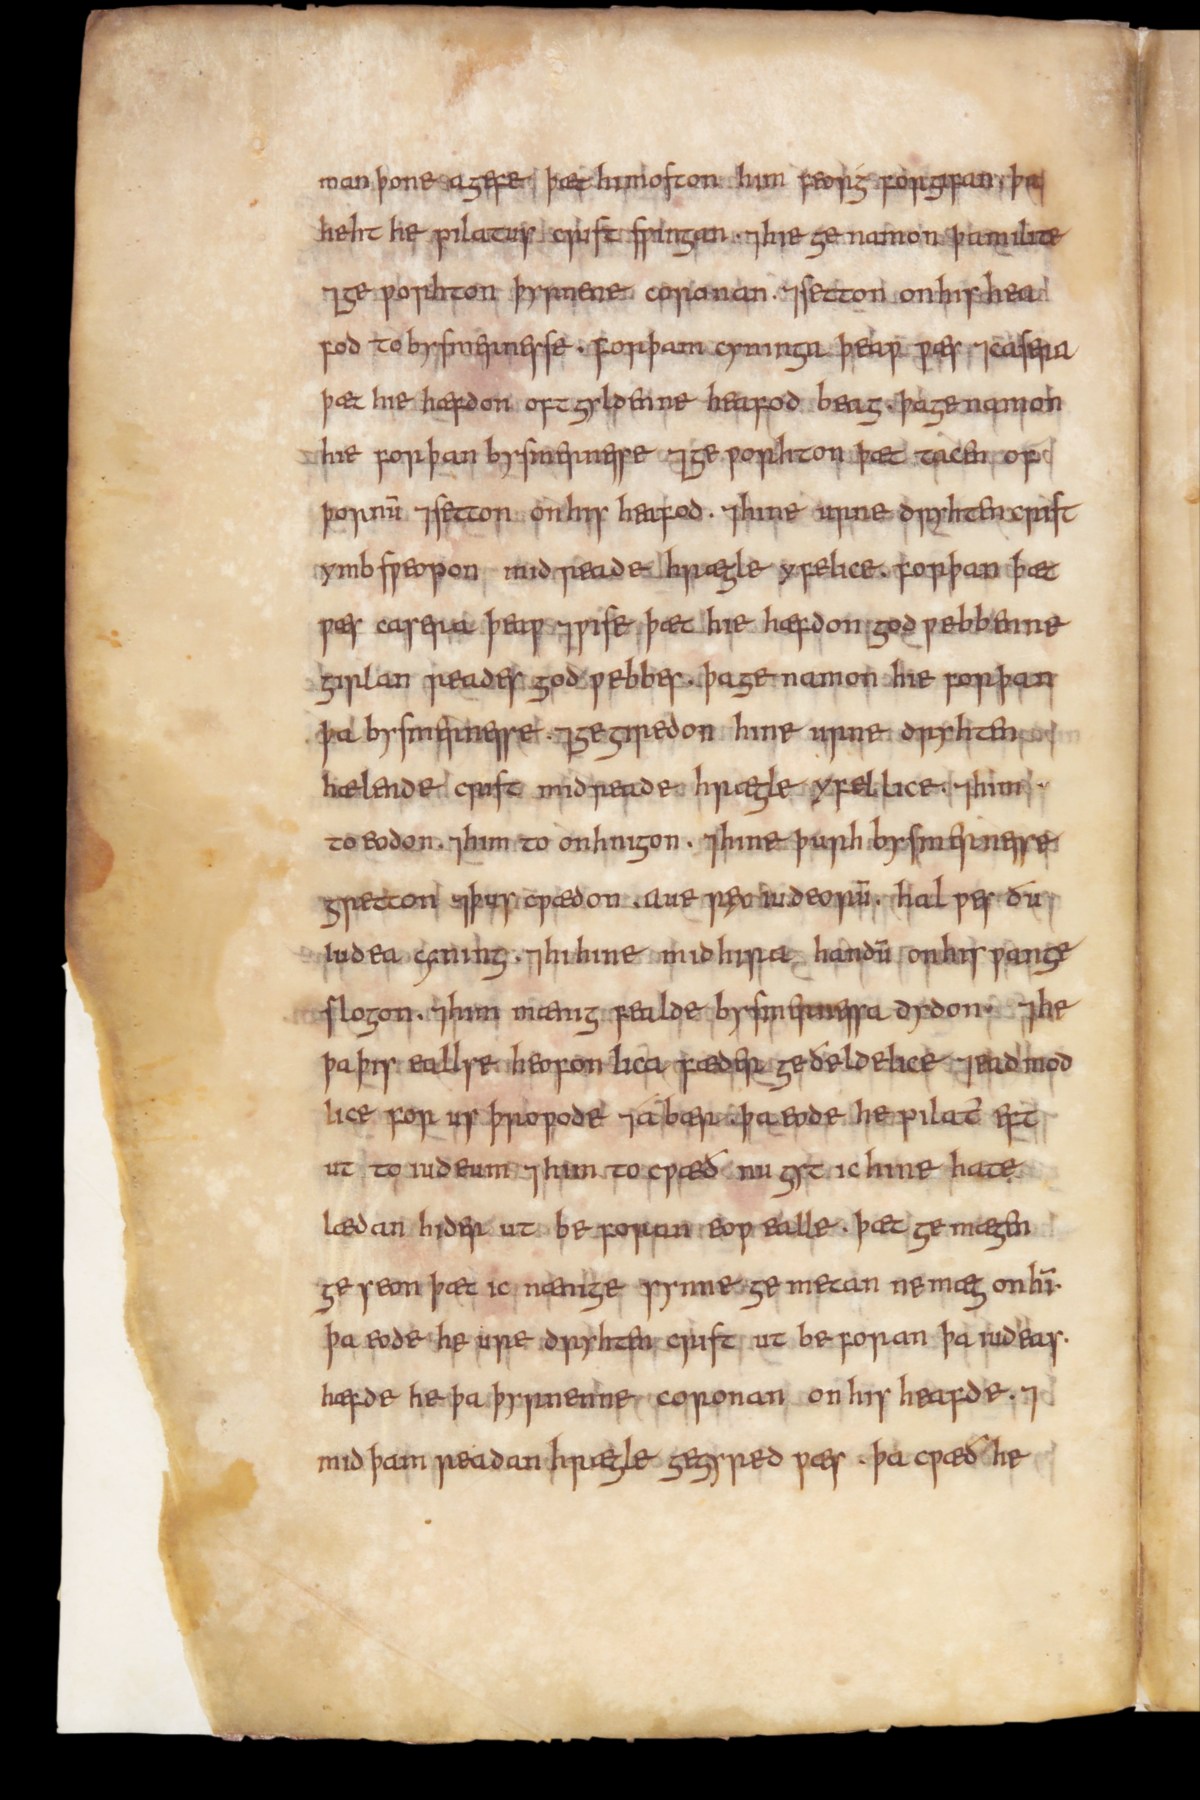 man þone agefe þæt him ofton him feorg forgifan. þa
heht he pilatus crist swingan. ⁊hie ge namon þa milite
⁊ge worhton þyrnene coronan. ⁊setton on his hea
fod to bysmernesse. forþam cyninga þeaw wæs ⁊casera
þæt hie hæfdon oft gyldenne heafod beag. þa ge namon
hie forþan bysmernesse ⁊ge worhton þæt tacen of
þornū ⁊setton on his heafod. ⁊hine urne dryhten crist
ymb sweopon mid reade hrægle yfelice. forþan þæt
wæs casera þeaw ⁊wise þæt hie hæfdon god webbenne
girlan reades god webbes. þa ge namon hie forþan
þa bysmernesse. ⁊ge giredon hine urne dryhten
hælende crist mid reade hrægle yfellice. ⁊him
to eodon. ⁊him to onhnigon. ⁊hine þurh bysmernesse
gretton ⁊þus cwædon. aue rex iudeorū. hal wes ðu
iudea cyning. ⁊hi hine mid hira handū on his wange
slogon. ⁊him mænig fealde bysmernessa dydon. ⁊he
þa þis eall se heofonlica fæder geðeldelice ⁊ead mod
lice for us þrowode ⁊á bær. þa eode he pilat̄ eft
ut to iudeum ⁊him to cwæð nu gyt ic hine hate
lædan hider ut be foran eow ealle. þæt ge mægen
ge seon þæt ic nænige synne ge metan ne mæg on hī.
þa eode he ure dryhten crist ut be foran þa iudeas.
hæfde he þa þyrnenne coronan on his heafde. ⁊
mid þam readan hrægle gegyred wæs. þa cwæð he